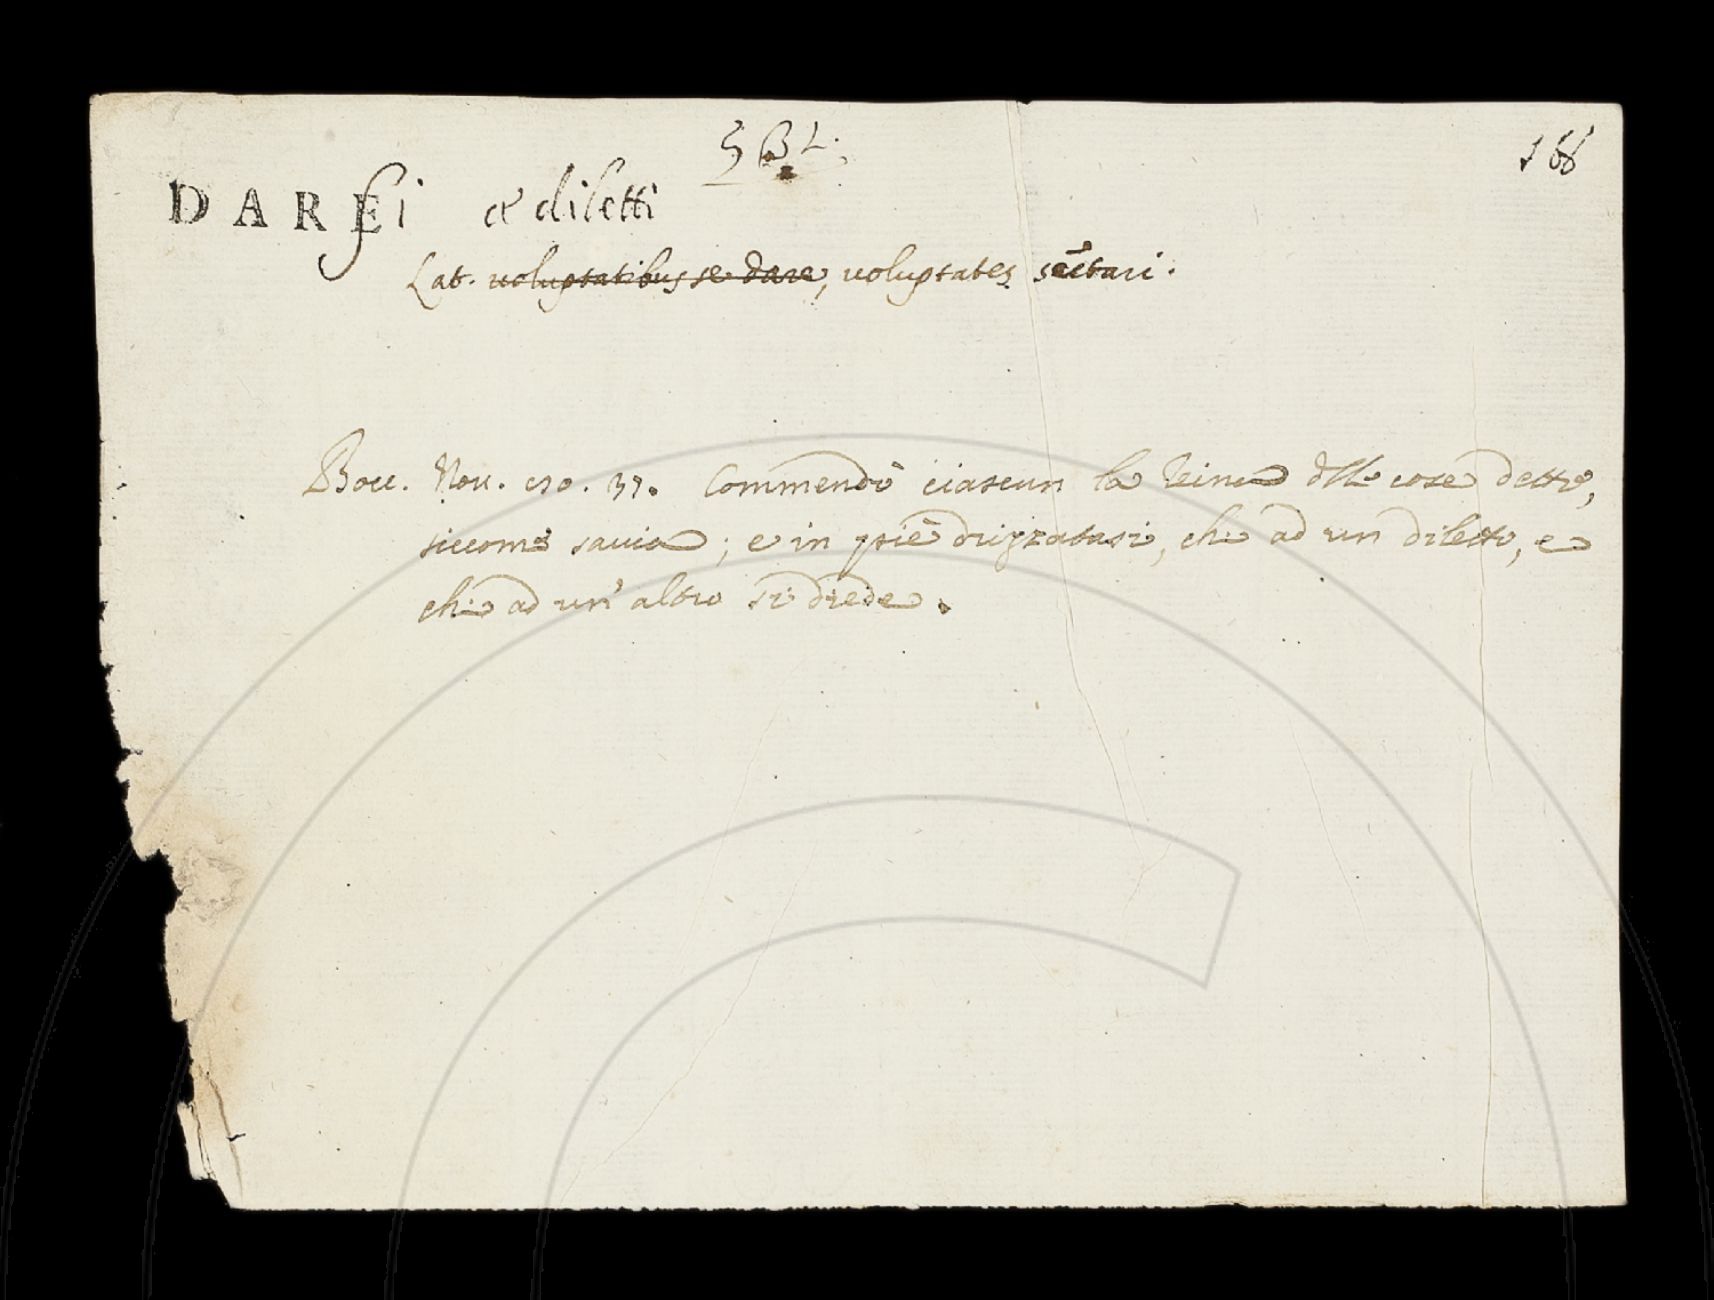 168
DARsi a' diletti
Lat. voluptatibus se dare, voluptates sectari.
Bocc. Nov. 37. Commendò ciascun la Reina delle cose dette,
siccome savia; e in piè drizzatasi, chi ad un diletto, e
chi ad un'altro si diede.